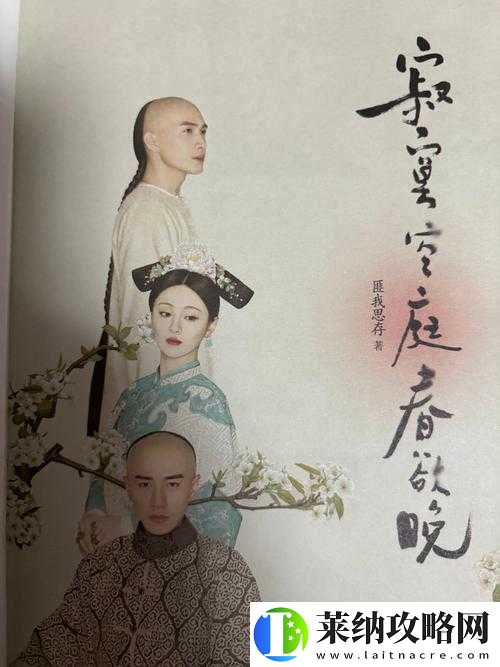 寂寞空庭春欲晚
匪我思存 著
莱纳攻略网
www.laitnacre.com